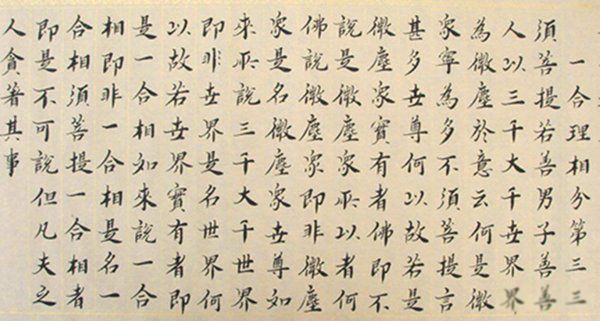 一合理相分第三
須菩提若善男子善
人以三千大千世界
為微塵於意云何是微
眾寧為多不須菩提言
甚多世尊何以故若是
微塵眾實有者佛即不
說是微塵眾所以者何
佛說微塵眾即非微塵
眾是名微塵眾世尊如
來所說三千大千世界
即非世界是名世界何
以故若世界實有者即
是一合相如來說一合
相即非一合相是名一
合相須菩提一合相者
即是不可說但凡夫之
人貪著其事